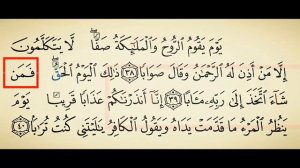 يَوْمَ يَقُومُ ٱلرُّوحُ وَٱلْمَلَٰٓئِكَةُ صَفًّا ۖ لَّا يَتَكَلَّمُونَ
إِلَّا مَنْ أَذِنَ لَهُ ٱلرَّحْمَٰنُ وَقَالَ صَوَابًا ٣٨ ذَٰلِكَ ٱلْيَوْمُ ٱلْحَقُّ ۖ فَمَن
شَآءَ ٱتَّخَذَ إِلَىٰ رَبِّهِۦ مَـَٔابًا ٣٩ إِنَّآ أَنذَرْنَٰكُمْ عَذَابًا قَرِيبًا يَوْمَ
يَنظُرُ ٱلْمَرْءُ مَا قَدَّمَتْ يَدَاهُ وَيَقُولُ ٱلْكَافِرُ يَٰلَيْتَنِى كُنتُ تُرَٰبًۢا ٤٠